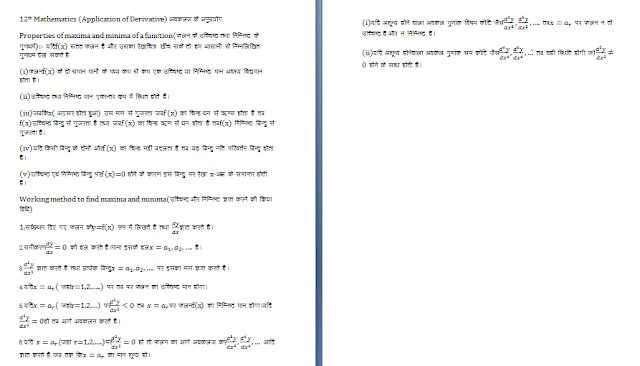 12ᵗʰ Mathematics (Application of Derivative) अवकलज के अनुप्रयोग
Properties of maxima and minima of a function(फलन के उच्चिष्ठ तथा निम्निष्ठ के
गुणधर्म):- यदिf(x) संतत फलन है और उसका रेखाचित्र खींच सकें तो हम आसानी से निम्नलिखित
गुणधर्म देख सकते हैं
(i)फलनf(x) के दो समान मानों के मध्य कम से कम एक उच्चिष्ठ या निम्निष्ठ मान अवश्य विद्यमान
होता है।
(ii)उच्चिष्ठ तथा निम्निष्ठ मान एकान्तर क्रम में स्थित होते हैं।
(iii)जबकि( अग्रसर होता हुआ) उस मान से गुजरता जबf(x) का चिन्ह धन से ऋण होता है तब
f(x)उच्चिष्ठ बिन्दु से गुजरता है तथा जबf(x) का चिन्ह ऋण से धन होता है तबf(x) निम्निष्ठ बिन्दु से
गुजरता है।
(iv)यदि किसी बिन्दु के दोनों ओरf(x) का चिन्ह नहीं बदलता है तब यह बिन्दु नति परिवर्तन बिन्दु होता
है।
(v)उच्चिष्ठ एवं निम्निष्ठ बिन्दु परf(x)=0 होने के कारण इस बिन्दु पर रेखा x-अक्ष के समान्तर होती
है।
Working method to find maxima and minima(उच्चिष्ठ और निम्निष्ठ ज्ञात करने की क्रिया
विधि)
1.सर्वप्रथम दिए गए फलन कोy=f(x) रूप में लिखते हैं तथा dy/dx ज्ञात करते हैं।
2.समीकरण dy/dx = 0 को हल करते हैं।माना इसके हलx = a₁, a₂, ... हैं।
3. d²y/dx² ज्ञात करते हैं तथा प्रत्येक बिन्दुx = a₁, a₂, ... पर इसका मान ज्ञात करते हैं।
4.यदिx = aᵣ ( जहाँr=1,2,...) पर तब पर फलन का उच्चिष्ठ मान होगा।
5.यदिx = aᵣ ( जहाँr=1,2,...) पर d²y/dx² < 0 तब x = aᵣ पर फलनf(x) का निम्निष्ठ मान होगा।यदि
d²y/dx² = 0हो तब आगे अवकलन करते हैं।
6.यदि x = aᵣ (जहाँ r=1,2,...)पर d²y/dx² = 0 हो तो फलन का आगे अवकलज कर d³y/dx³, d⁴y/dx⁴, ... आदि
ज्ञात करते हैं जब तक कि x = aᵣ का मान शून्य हो।
(i)यदि अशून्य होने वाला अवकल गुणांक विषम कोटि जैसे d³y/dx³, d⁵y/dx⁵, ... तब x = aᵣ पर फलन न तो
उच्चिष्ठ है और न निम्निष्ठ है।
(ii)यदि अशून्य होनेवाला अवकल गुणांक सम कोटि जैसे d⁴y/dx⁴, d⁶y/dx⁶, ...: तब वही स्थिति होगी जो d²y/dx² ≠
0 होने के साथ होती है।